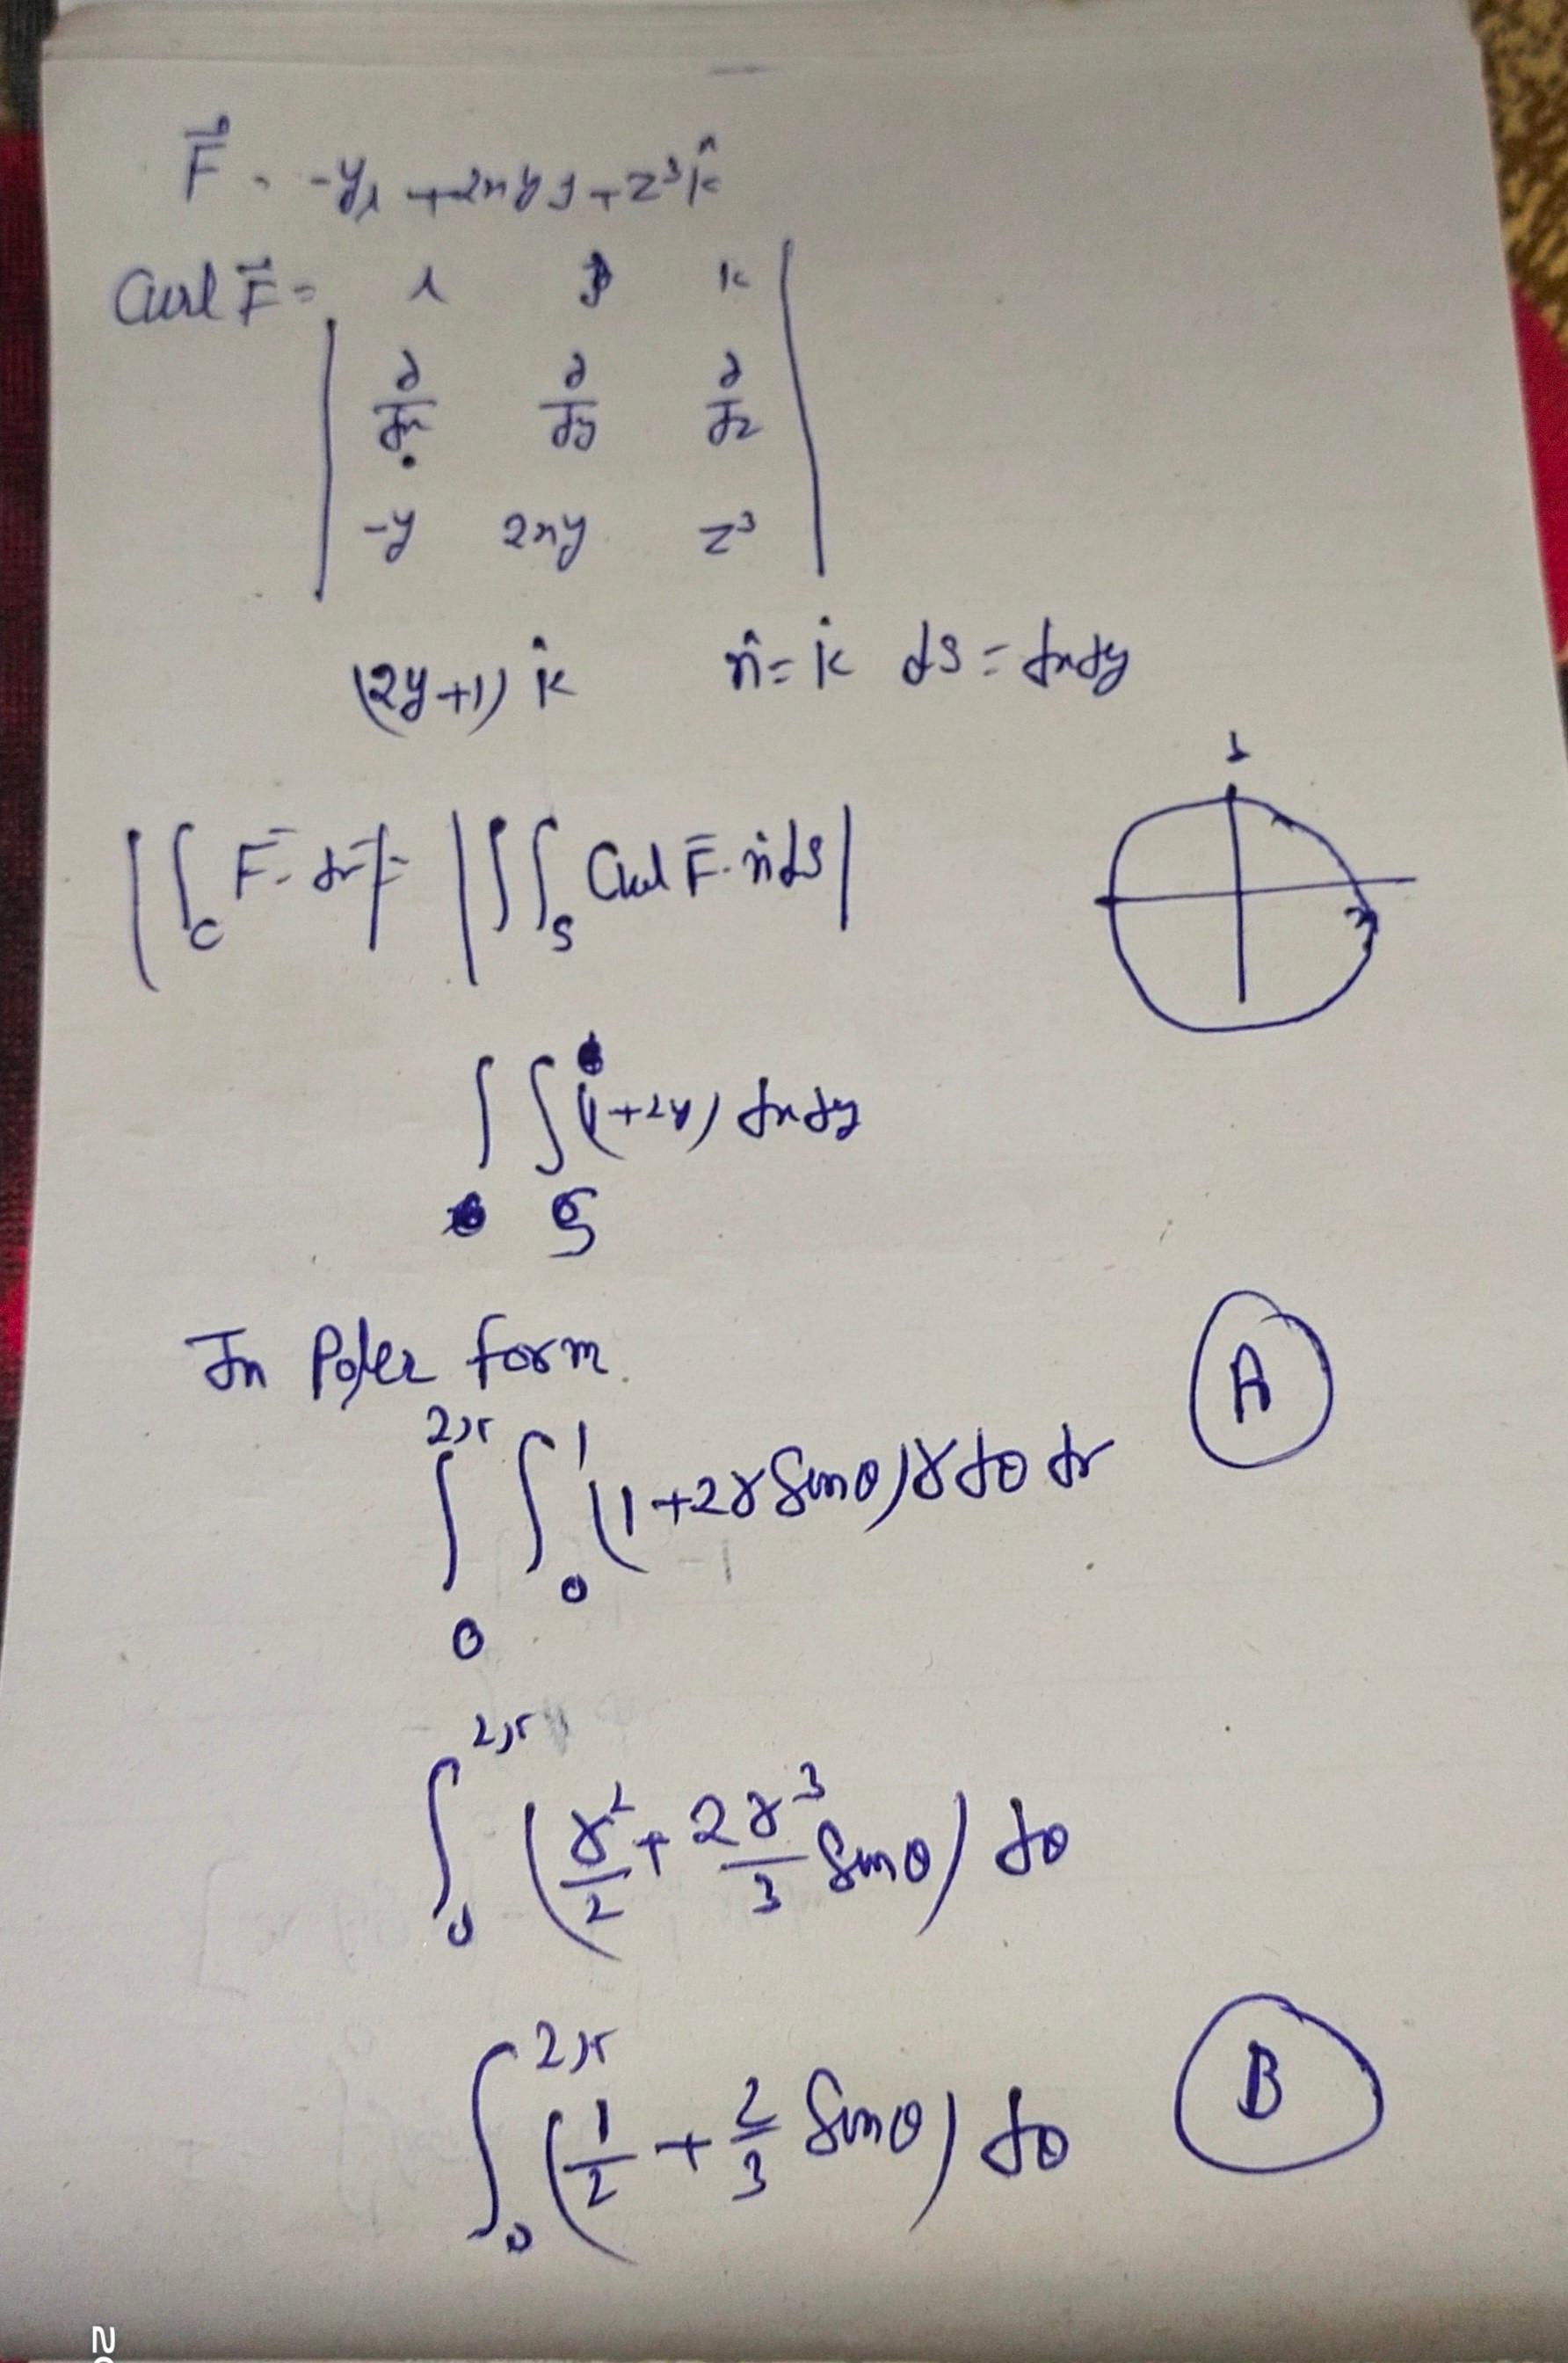 F⃗ = -yi + 2xyj + z³k̂
Curl F⃗ = | i j k |
| ∂/∂x ∂/∂y ∂/∂z |
| -y 2xy z³ |
(2y+1) k̂ n̂ = k̂ ds = dxdy
|∫_C F̄·dr̄| = |∫∫_S Curl F̄·n̂ds|
∫∫_S (1+2y) dxdy
In Poler form.
A
∫_0^{2π} ∫_0^1 (1+2r Sinθ) r dθ dr
∫_0^{2π} (r²/2 + 2r³/3 Sinθ) dθ
∫_0^{2π} (1/2 + 2/3 Sinθ) dθ
B